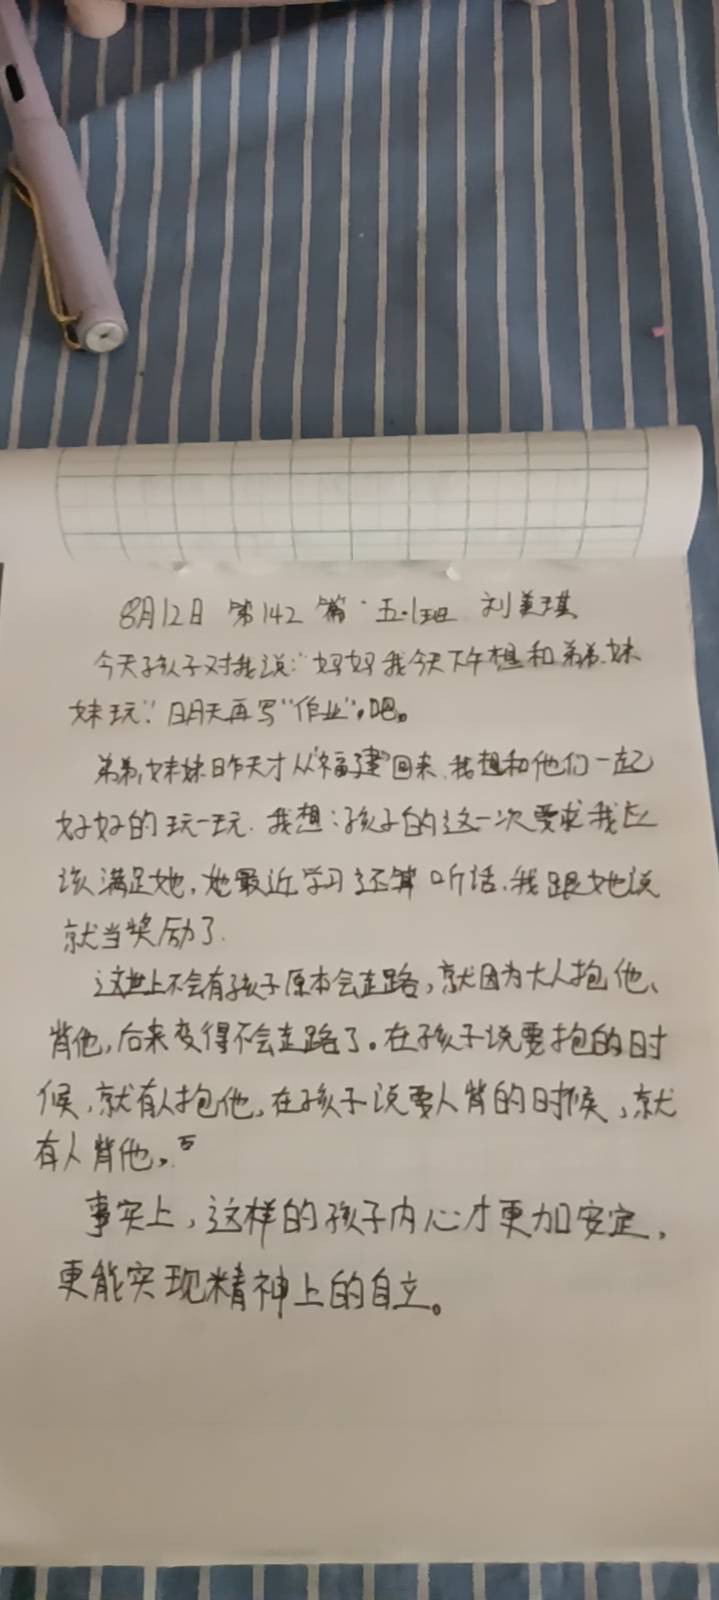 8月12日 第142篇·五.1班 刘美琪
今天孩子对我说:"妈妈我今天下午想和弟弟、妹
妹玩"!明天再写"作业"。吧。
弟弟,妹妹昨天才从"福建"回来,我想和他们一起
好好的玩一玩.我想:孩子的这一次要求我应
该满足她,她最近学习还算听话,我跟她说
就当奖励了.
这世上不会有孩子原本会走路,就因为大人抱他、
背他,后来变得不会走路了。在孩子说要抱的时
候,就有人抱他,在孩子说要人背的时候,就
有人背他。
事实上,这样的孩子内心才更加安定,
更能实现精神上的自立。